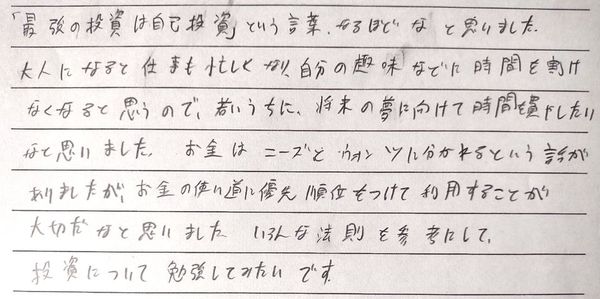 「最強の投資は自己投資」という言葉、なるほどな と思いました.
大人になると仕事も忙しくなり、自分の趣味などに時間を割け
なくなると思うので、若いうちに、将来の夢に向けて時間を費やしたい
なと思いました. お金はニーズとウォンツに分かれるという話が
ありましたが、お金の使い道に優先順位をつけて利用することが
大切だなと思いました いろんな法則を参考にして、
投資について勉強してみたいです.